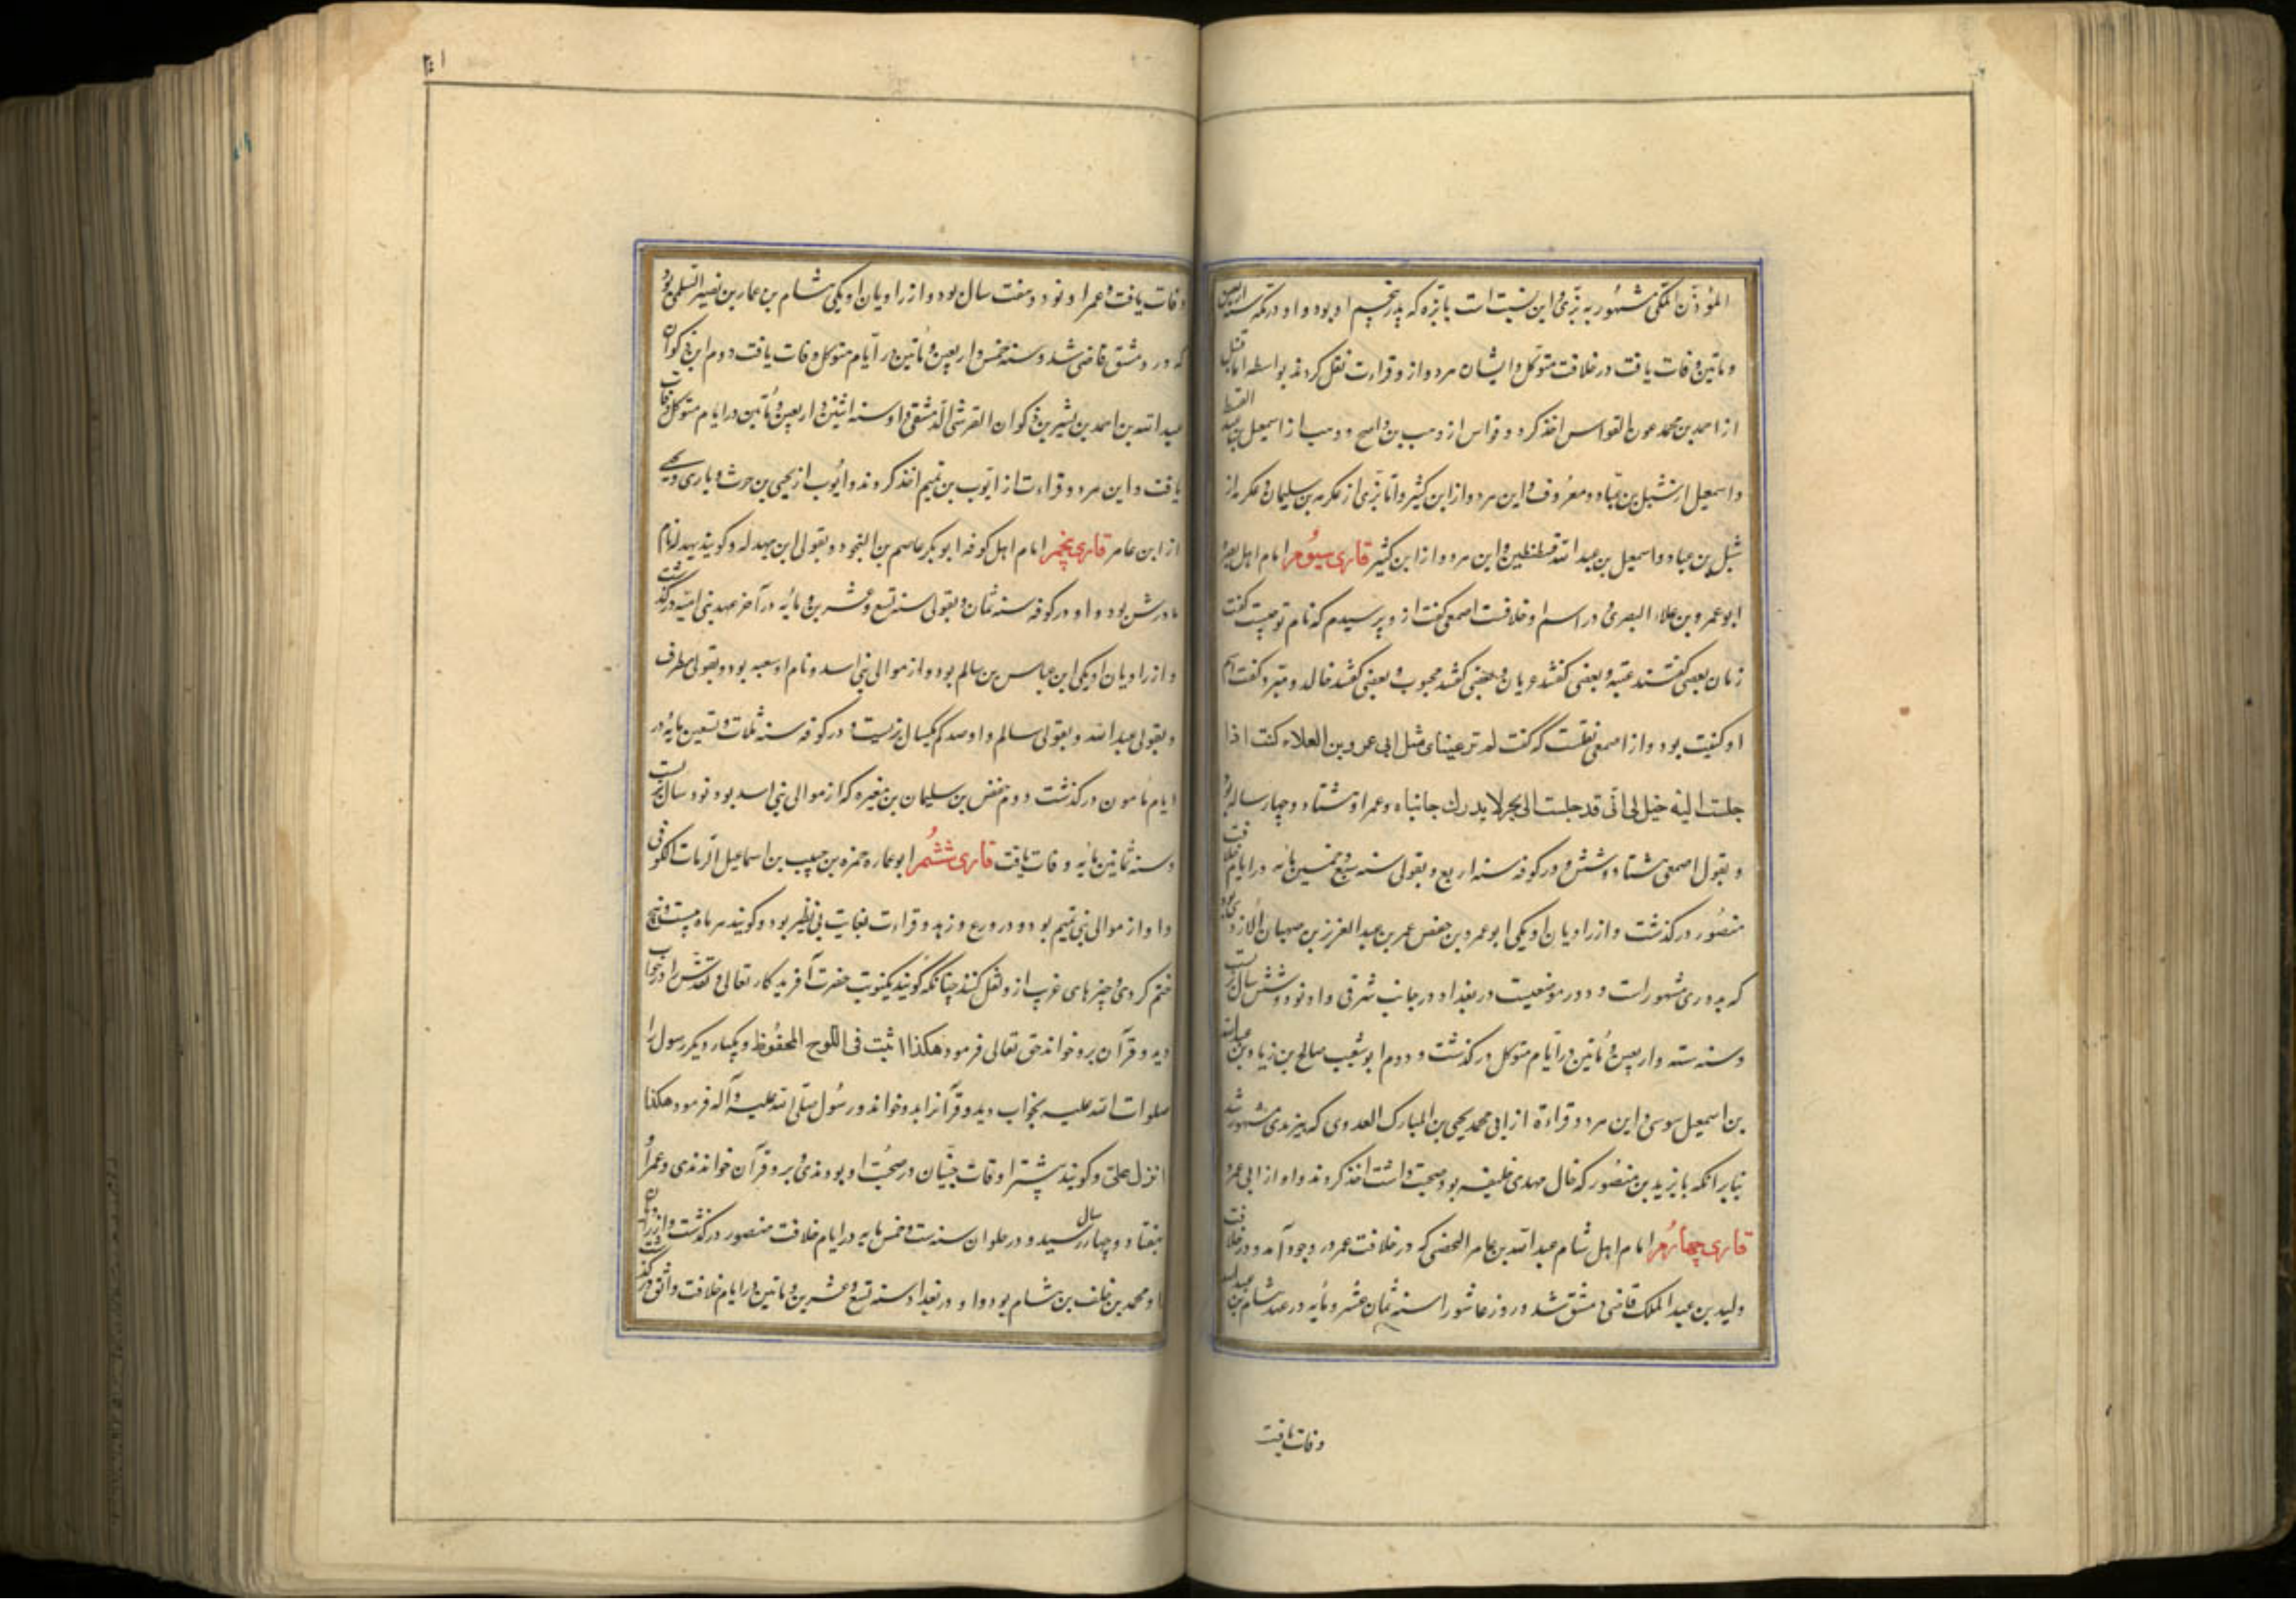 المؤذن المکی مشهور به بزی و این نسبت است بابزه که پدر پنجم او بود و او در مکه سنه اربعین
و مأتین وفات یافت در خلافت متوکل و ایشان هر دو ازو قراءت نقل کردند بواسطه اما قنبل
از احمد بن محمد عون القواس اخذ کرد و قواس از وهب بن واضح و وهب از اسمعیل بن عبد الله القسط
و اسمعیل از شبل بن عباد و معروف و این هر دو از ابن کثیر و اما بزی از عکرمه بن سلیمان و عکرمه از
شبل بن عباد و اسمعیل بن عبد الله قسطنطین و این هر دو از ابن کثیر قاری سیوم امام اهل بصره
ابو عمرو بن علاء البصری و در اسم او خلافست اصمعی گفت ازو پرسیدم که نام تو چیست گفت
زبان بعضی گفتند عتبه و بعضی گفتند عریان و بعضی گفتند محبوب و بعضی گفتند خالد و مبرد گفت اسم
او کنیت بود و از اصمعی نقلست که گفت لم تر عینای مثل ابی عمرو بن العلاء کنت اذا
جلست الیه خیل لی انی قد جلست الی بحر لا یدرک جانباه و عمر او هشتاد و چهار ساله بود
و بقول اصمعی هشتاد و شش و در کوفه سنه اربع و بقولی سنه سبع و خمسین مائه در ایام خلافت
منصور درگذشت و از راویان او یکی ابو عمرو بن حفص عمر بن عبد العزیز بن صهبان الازدی
که بدوری مشهور است و دور موضعیست در بغداد در جانب شرقی و او نود و شش سال بزیست
و سنه سته و اربعین و مأتین در ایام متوکل درگذشت و دوم ابو شعیب صالح بن زیاد بن عبد الله
بن اسمعیل سوسی و این هر دو قراءة از ابی محمد یحیی بن المبارک العدوی که بیزیدی مشهور شد
بنابر آنکه با یزید بن منصور که خال مهدی خلیفه بود صحبت داشت اخذ کردند و او از ابی عمرو
قاری چهارم امام اهل شام عبد الله بن عامر که در خلافت عمر در وجود آمد و در خلافت
ولید بن عبد الملک قاضی دمشق شد و روز عاشورا سنه ثمان عشر و مأیه در عهد هشام بن عبد الملک
وفات یافت
وفات یافت و عمر او نود و هفت سال بود و از راویان او یکی هشام بن عمار بن نصیر السلمی بود
که در دمشق قاضی شد و سنه خمس و اربعین و مأتین در ایام متوکل وفات یافت دوم ابن ذکوان
عبد الله بن احمد بن بشیر بن ذکوان القرشی الدمشقی و او سنه اثنین و اربعین و مأتین در ایام متوکل وفات
یافت و این هر دو قراءت از ایوب بن تمیم اخذ کردند و ایوب از یحیی بن حرث دیاری و یحیی
از ابن عامر قاری پنجم امام اهل کوفه ابو بکر عاصم بن النجود و بقولی ابن بهدله و گویند بهدله نام
مادرش بود و او در کوفه سنه ثمان و بقولی سنه تسع و عشرین و مایه در آخر عهد بنی امیه درگذشت
و از راویان او یکی ابن عباس بن سالم بود و از موالی بنی اسد و نام او شعبه بود و بقولی مطرف
و بقولی عبد الله و بقولی سالم و او صد کم یکسال بزیست و در کوفه سنه ثلاث و تسعین مایه در
ایام مأمون درگذشت دوم حفص بن سلیمان بن مغیره که از موالی بنی اسد بود نود سال بزیست
و سنه ثمانین مائیه وفات یافت قاری ششم ابو عماره حمزه بن حبیب بن اسماعیل الزیات الکوفی
و او از موالی بنی تمیم بود و در ورع و زهد و قراءت بغایت بی نظیر بود و گویند هر ماه بیست و پنج
ختم کردی و چیزهای غریب ازو نقل کنند چنانکه گویند یکنوبت حضرت آفریدگار تعالی و تقدس را در خواب
دید و قرآن برو خواند حق تعالی فرمود هکذا اثبت فی اللوح المحفوظ و یکبار دیگر رسول را
صلوات الله علیه بخواب دید و قرآن بدو خواند و رسول صلی الله علیه و آله فرمود هکذا
انزل علی و گویند پیشتر اوقات جنیان در صحبت او بودندی و برو قرآن خواندندی و عمر او
بهفتاد و چهار سال رسید و در حلوان سنه ست و خمس مایه در ایام خلافت منصور درگذشت و از راویان
او محمد بن خلف بن هشام بود و او در بغداد سنه تسع و عشرین و مأتین در ایام خلافت واثق درگذشت